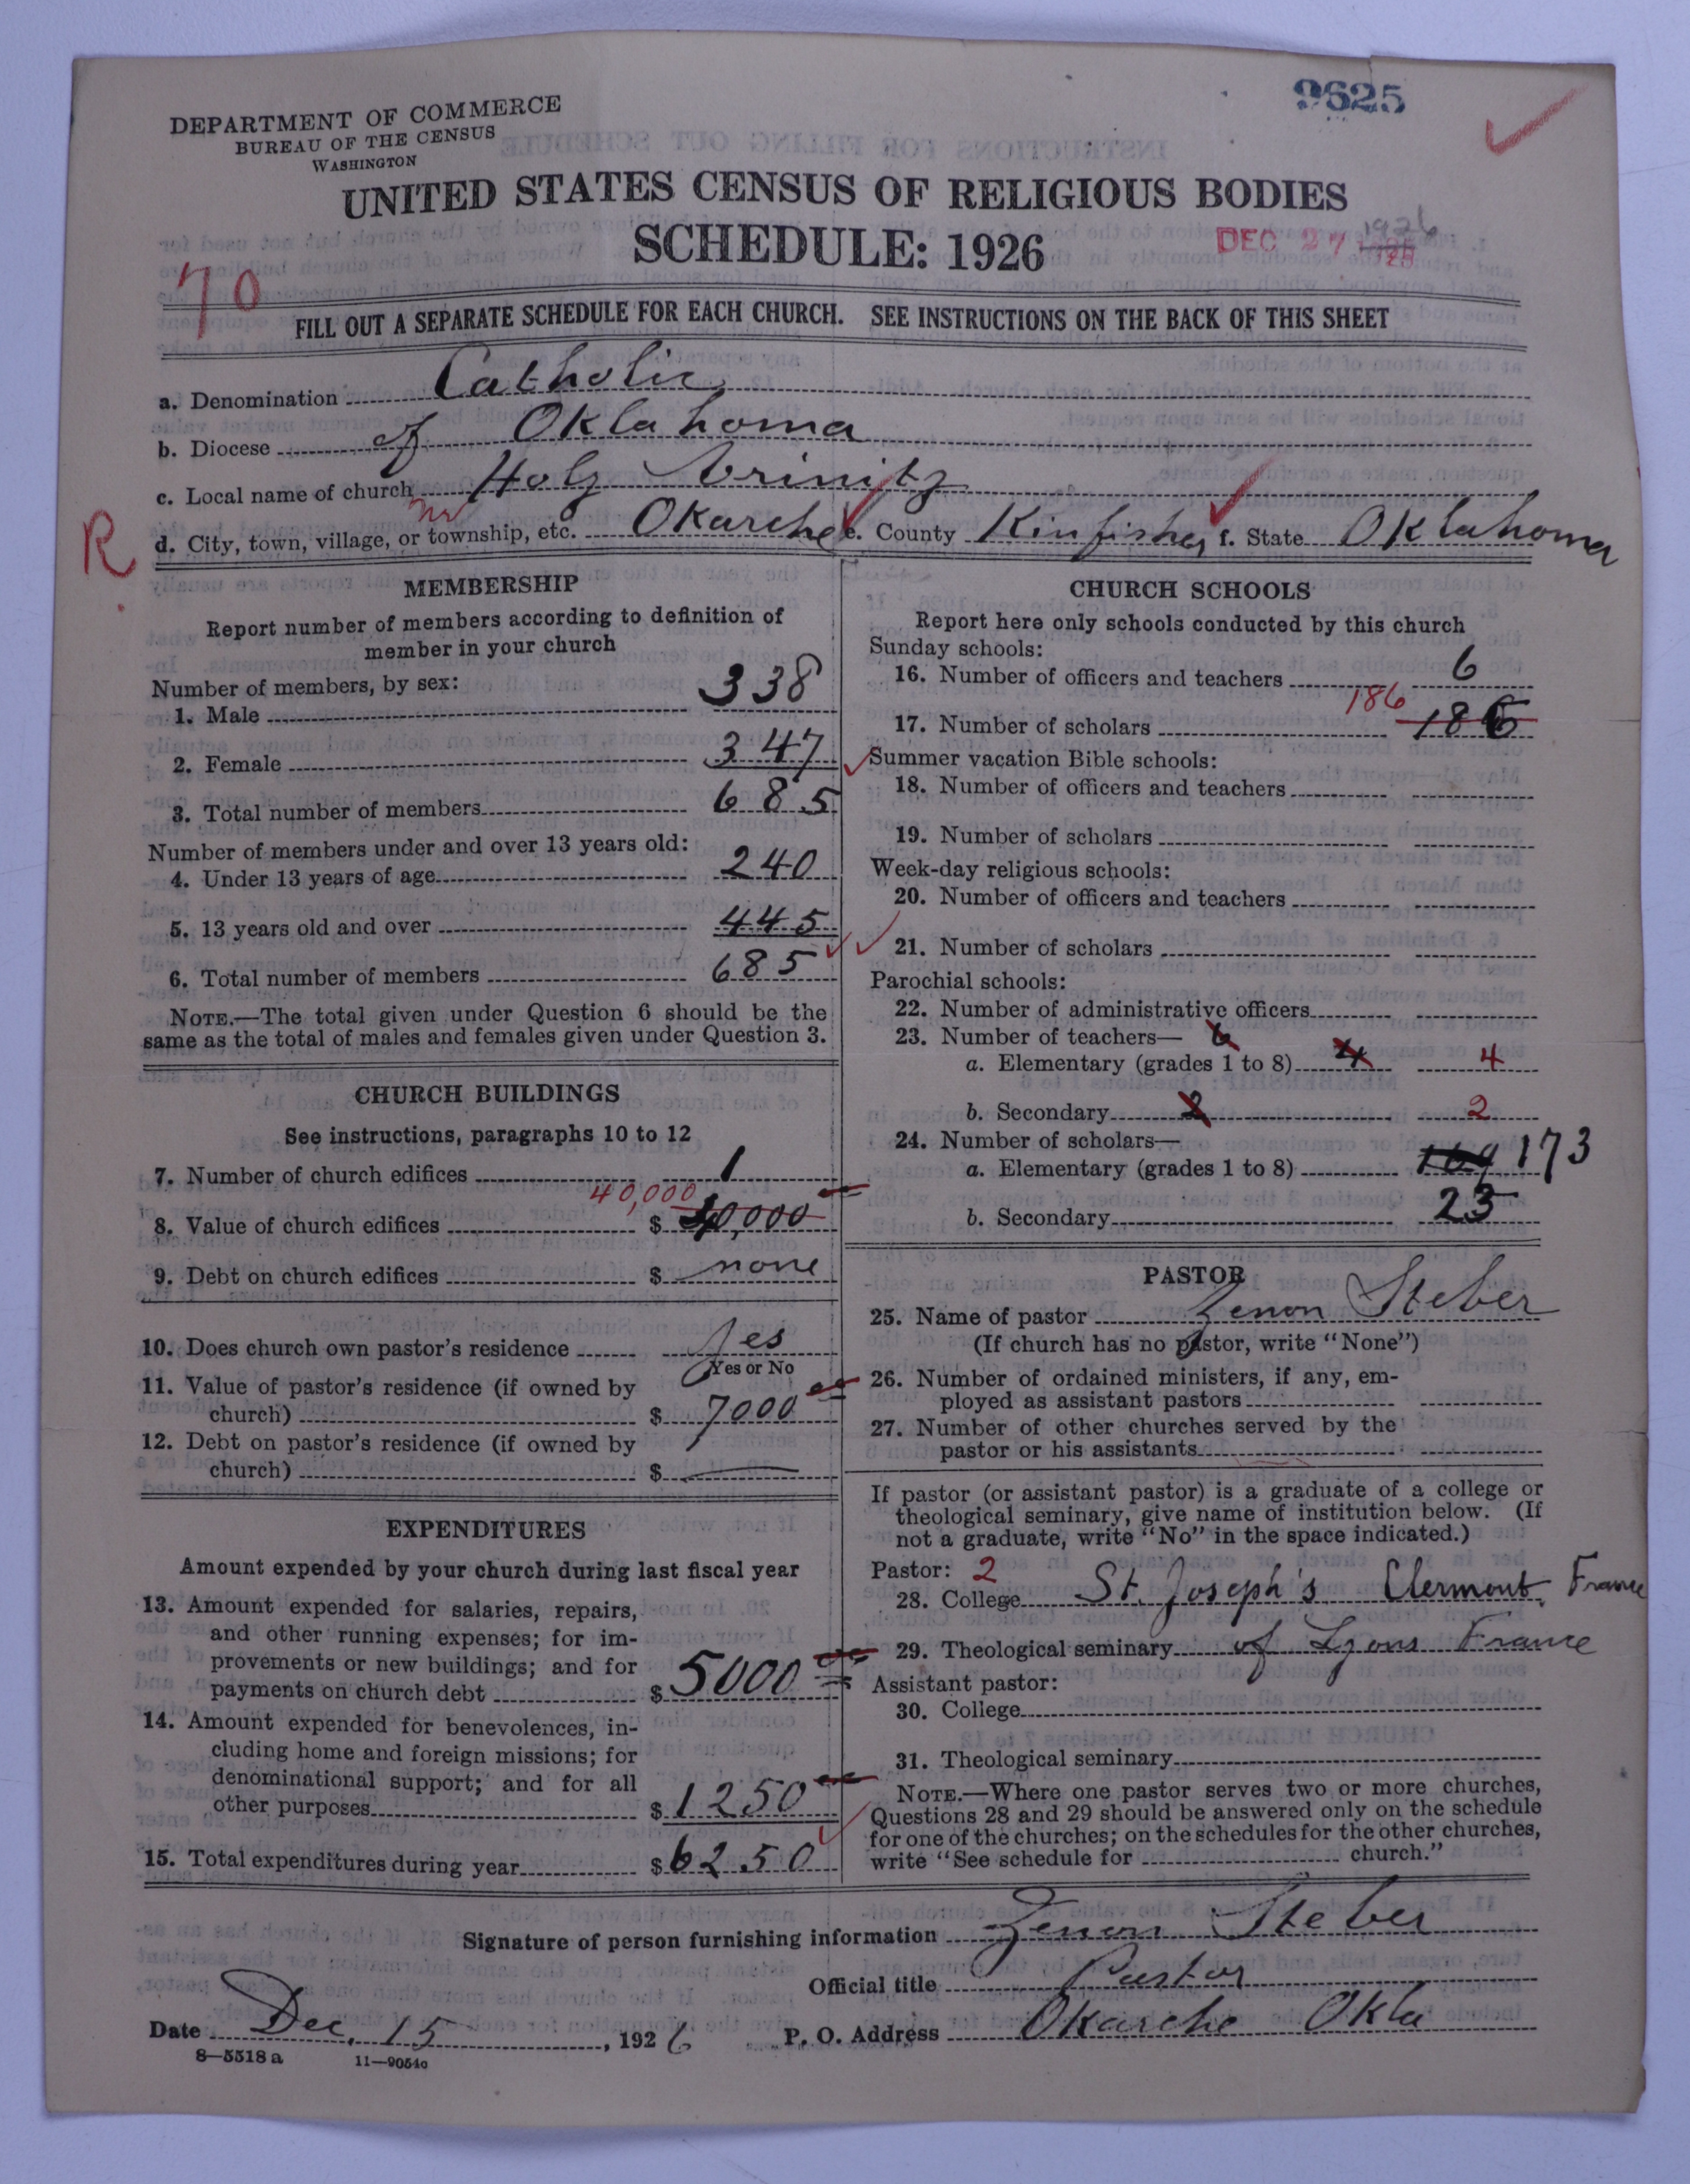 9625
DEPARTMENT OF COMMERCE
BUREAU OF THE CENSUS
WASHINGTON
UNITED STATES CENSUS OF RELIGIOUS BODIES
SCHEDULE: 1926
1926
DEC 27
70
FILL OUT A SEPARATE SCHEDULE FOR EACH CHURCH. SEE INSTRUCTIONS ON THE BACK OF THIS SHEET
a. Denomination Catholic
b. Diocese of Oklahoma
c. Local name of church Holy Trinity
R
d. City, town, village, or township, etc. Okarche e. County Kinfisher f. State Oklahoma
MEMBERSHIP
Report number of members according to definition of
member in your church
Number of members, by sex:
1. Male 338
2. Female 347
3. Total number of members 685
Number of members under and over 13 years old:
4. Under 13 years of age 240
5. 13 years old and over 445
6. Total number of members 685
NOTE.—The total given under Question 6 should be the
same as the total of males and females given under Question 3.
CHURCH BUILDINGS
See instructions, paragraphs 10 to 12
7. Number of church edifices 1
40,000
8. Value of church edifices $ 40,000
9. Debt on church edifices $ none
10. Does church own pastor's residence Yes
Yes or No
11. Value of pastor's residence (if owned by
church) $ 7000
12. Debt on pastor's residence (if owned by
church) $ —
EXPENDITURES
Amount expended by your church during last fiscal year
13. Amount expended for salaries, repairs,
and other running expenses; for im-
provements or new buildings; and for
payments on church debt $ 5000
14. Amount expended for benevolences, in-
cluding home and foreign missions; for
denominational support; and for all
other purposes $ 1250
15. Total expenditures during year $ 6250
CHURCH SCHOOLS
Report here only schools conducted by this church
Sunday schools:
16. Number of officers and teachers 6
17. Number of scholars 186 186
Summer vacation Bible schools:
18. Number of officers and teachers
19. Number of scholars
Week-day religious schools:
20. Number of officers and teachers
21. Number of scholars
Parochial schools:
22. Number of administrative officers
23. Number of teachers— 6
a. Elementary (grades 1 to 8) 4 4
b. Secondary 2 2
24. Number of scholars—
a. Elementary (grades 1 to 8) 169 173
b. Secondary 23
PASTOR
25. Name of pastor Zenon Steber
(If church has no pastor, write "None")
26. Number of ordained ministers, if any, em-
ployed as assistant pastors
27. Number of other churches served by the
pastor or his assistants
If pastor (or assistant pastor) is a graduate of a college or
theological seminary, give name of institution below. (If
not a graduate, write "No" in the space indicated.)
Pastor: 2
28. College St. Joseph's Clermont, France
29. Theological seminary of Lyons France
Assistant pastor:
30. College
31. Theological seminary
NOTE.—Where one pastor serves two or more churches,
Questions 28 and 29 should be answered only on the schedule
for one of the churches; on the schedules for the other churches,
write "See schedule for church."
Signature of person furnishing information Zenon Steber
Official title Pastor
Date Dec. 15, 1926 P. O. Address Okarche Okla
8—5518 a 11—9054c